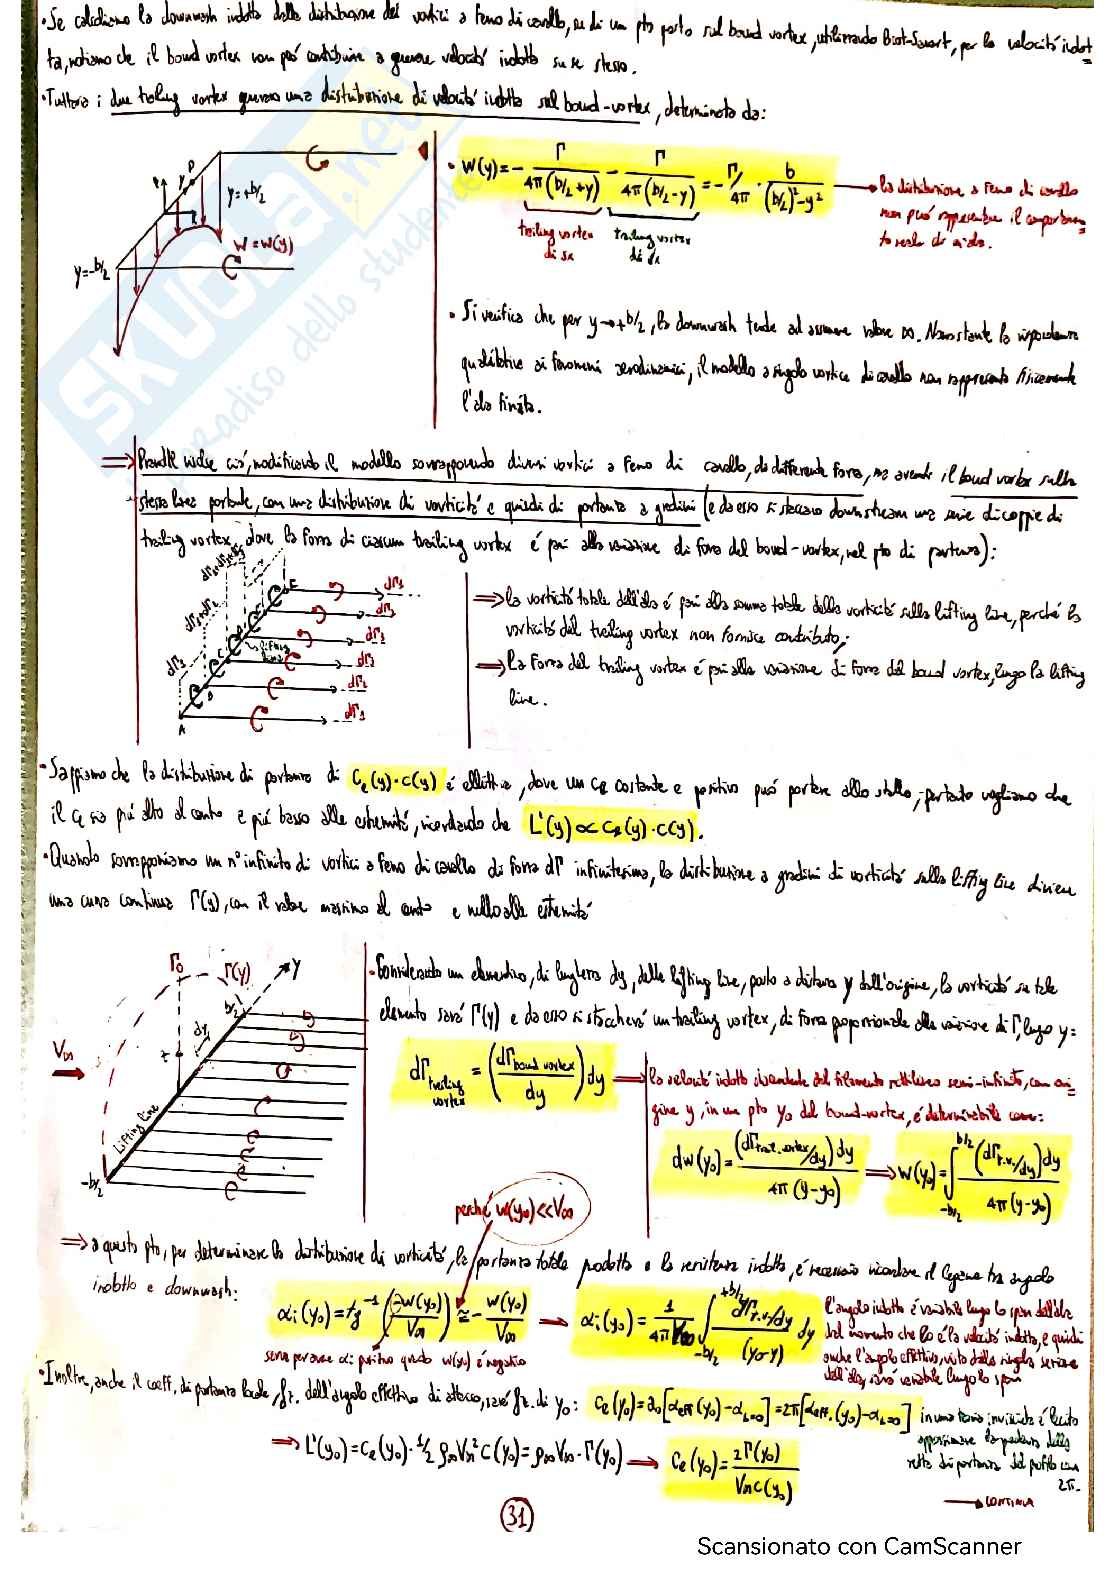 •Se calcoliamo la downwash indotta dalla distribuzione dei vortici a ferro di cavallo, su di un pto posto sul bound vortex, utilizzando Biot-Savart, per la velocità indot
ta, notiamo che il bound vortex non può contribuire a generare velocità indotta su se stesso.
•Tuttavia i due trailing vortex generano una distribuzione di velocità indotta sul bound-vortex, determinata da:
y=+b/2
W=W(y)
y=-b/2
• W(y)= - Γ / 4π(b/2+y) - Γ / 4π(b/2-y) = -Γ/4π · b / (b/2)²-y²
trailing vortex di sx
trailing vortex di dx
la distribuzione a ferro di cavallo
non può rappresentare il comportamen
to reale di
• Si verifica che per y→+b/2, la downwash tende ad assumere valore ∞. Nonostante la rispondenza
qualitativa ai fenomeni aerodinamici, il modello a singolo vortice di cavallo non rappresenta fisicamente
l'ala finita.
⇒ Prandtl ciò, modificando il modello sovrapponendo diversi vortici a ferro di cavallo, di differente forza, ma avente il bound vortex sulla
stessa linea portante, con una distribuzione di vorticità e quindi di portanza a gradini (e da esso si staccano downstream una serie di coppie di
trailing vortex, dove la forza di ciascun trailing vortex è pari alla variazione di forza del bound-vortex, nel pto di partenza):
dΓ1+dΓ2+dΓ3
dΓ1+dΓ2
dΓ1
A
B
C
D
E
lifting line
dΓ1
dΓ2
dΓ3
dΓ3
dΓ2
dΓ1
⇒ la vorticità totale dell'ala è pari alla somma totale della vorticità sulla lifting line, perché la
vorticità del trailing vortex non fornisce contributo;
⇒ la forza del trailing vortex è pari alla variazione di forza del bound vortex, lungo la lifting
line.
•Sappiamo che la distribuzione di portanza di Cl(y)·c(y) è ellittica, dove un cl costante e positivo può portare allo stallo, pertanto vogliamo che
il cl sia più alto al centro e più basso alle estremità, ricordando che L'(y)∝cl(y)·c(y).
•Quando sovrapponiamo un n° infinito di vortici a ferro di cavallo di forza dΓ infinitesima, la distribuzione a gradini di vorticità sulla lifting line diviene
una curva continua Γ(y), con il valore massimo al centro e nullo alle estremità
Γ0
Γ(y)
y
b/2
dy
z
V∞
Lifting line
-b/2
•Considerando un elementino, di lunghezza dy, della lifting line, posto a distanza y dall'origine, la vorticità su tale
elemento sarà Γ(y) e da esso si staccherà un trailing vortex, di forza proporzionale alla variazione di Γ, lungo y:
dΓ trailing vortex = (dΓ bound vortex / dy) dy
⇒ la velocità indotta del filamento rettilineo semi-infinito, con ori
gine y, in un pto y0 del bound-vortex, è determinabile come:
dw(y0) = (dΓ trail. vortex/dy)dy / 4π(y-y0) ⇒ W(y0) = ∫ -b/2 b/2 (dΓ t.v./dy)dy / 4π(y-y0)
perché w(y0)<<V∞
⇒ a questo pto, per determinare la distribuzione di vorticità, la portanza totale prodotta e la resistenza indotta, è necessario ricordare il legame tra angolo
indotto e downwash:
αi(y0)=tg⁻¹(-W(y0)/V∞) ≅ - W(y0)/V∞ → αi(y0) = 1/4πV∞ ∫ -b/2 +b/2 dΓt.v./dy / (y0-y) dy
serve per avere αi positivo quando w(y0) è negativo
l'angolo indotto è variabile lungo lo span dell'ala
dal momento che lo è la velocità indotta, e quindi
anche l'angolo effettivo, visto dalla singola sezione
dell'ala, sarà variabile lungo lo span
•Inoltre, anche il coeff. di portanza locale, fz. dell'angolo effettivo di attacco, sarà fz. di y0: Cl(y0)=a0[αeff(y0)-αL=0]=2π[αeff.(y0)-αL=0]
in una teoria inviscida è lecito
approssimare la pendenza della
retta di portanza del profilo con
2π.
⇒ L'(y0)=Cl(y0)·1/2 ρ∞V∞² c(y0)=ρ∞V∞·Γ(y0) → Cl(y0)= 2Γ(y0) / V∞c(y0)
→ CONTINUA
31
Scansionato con CamScanner